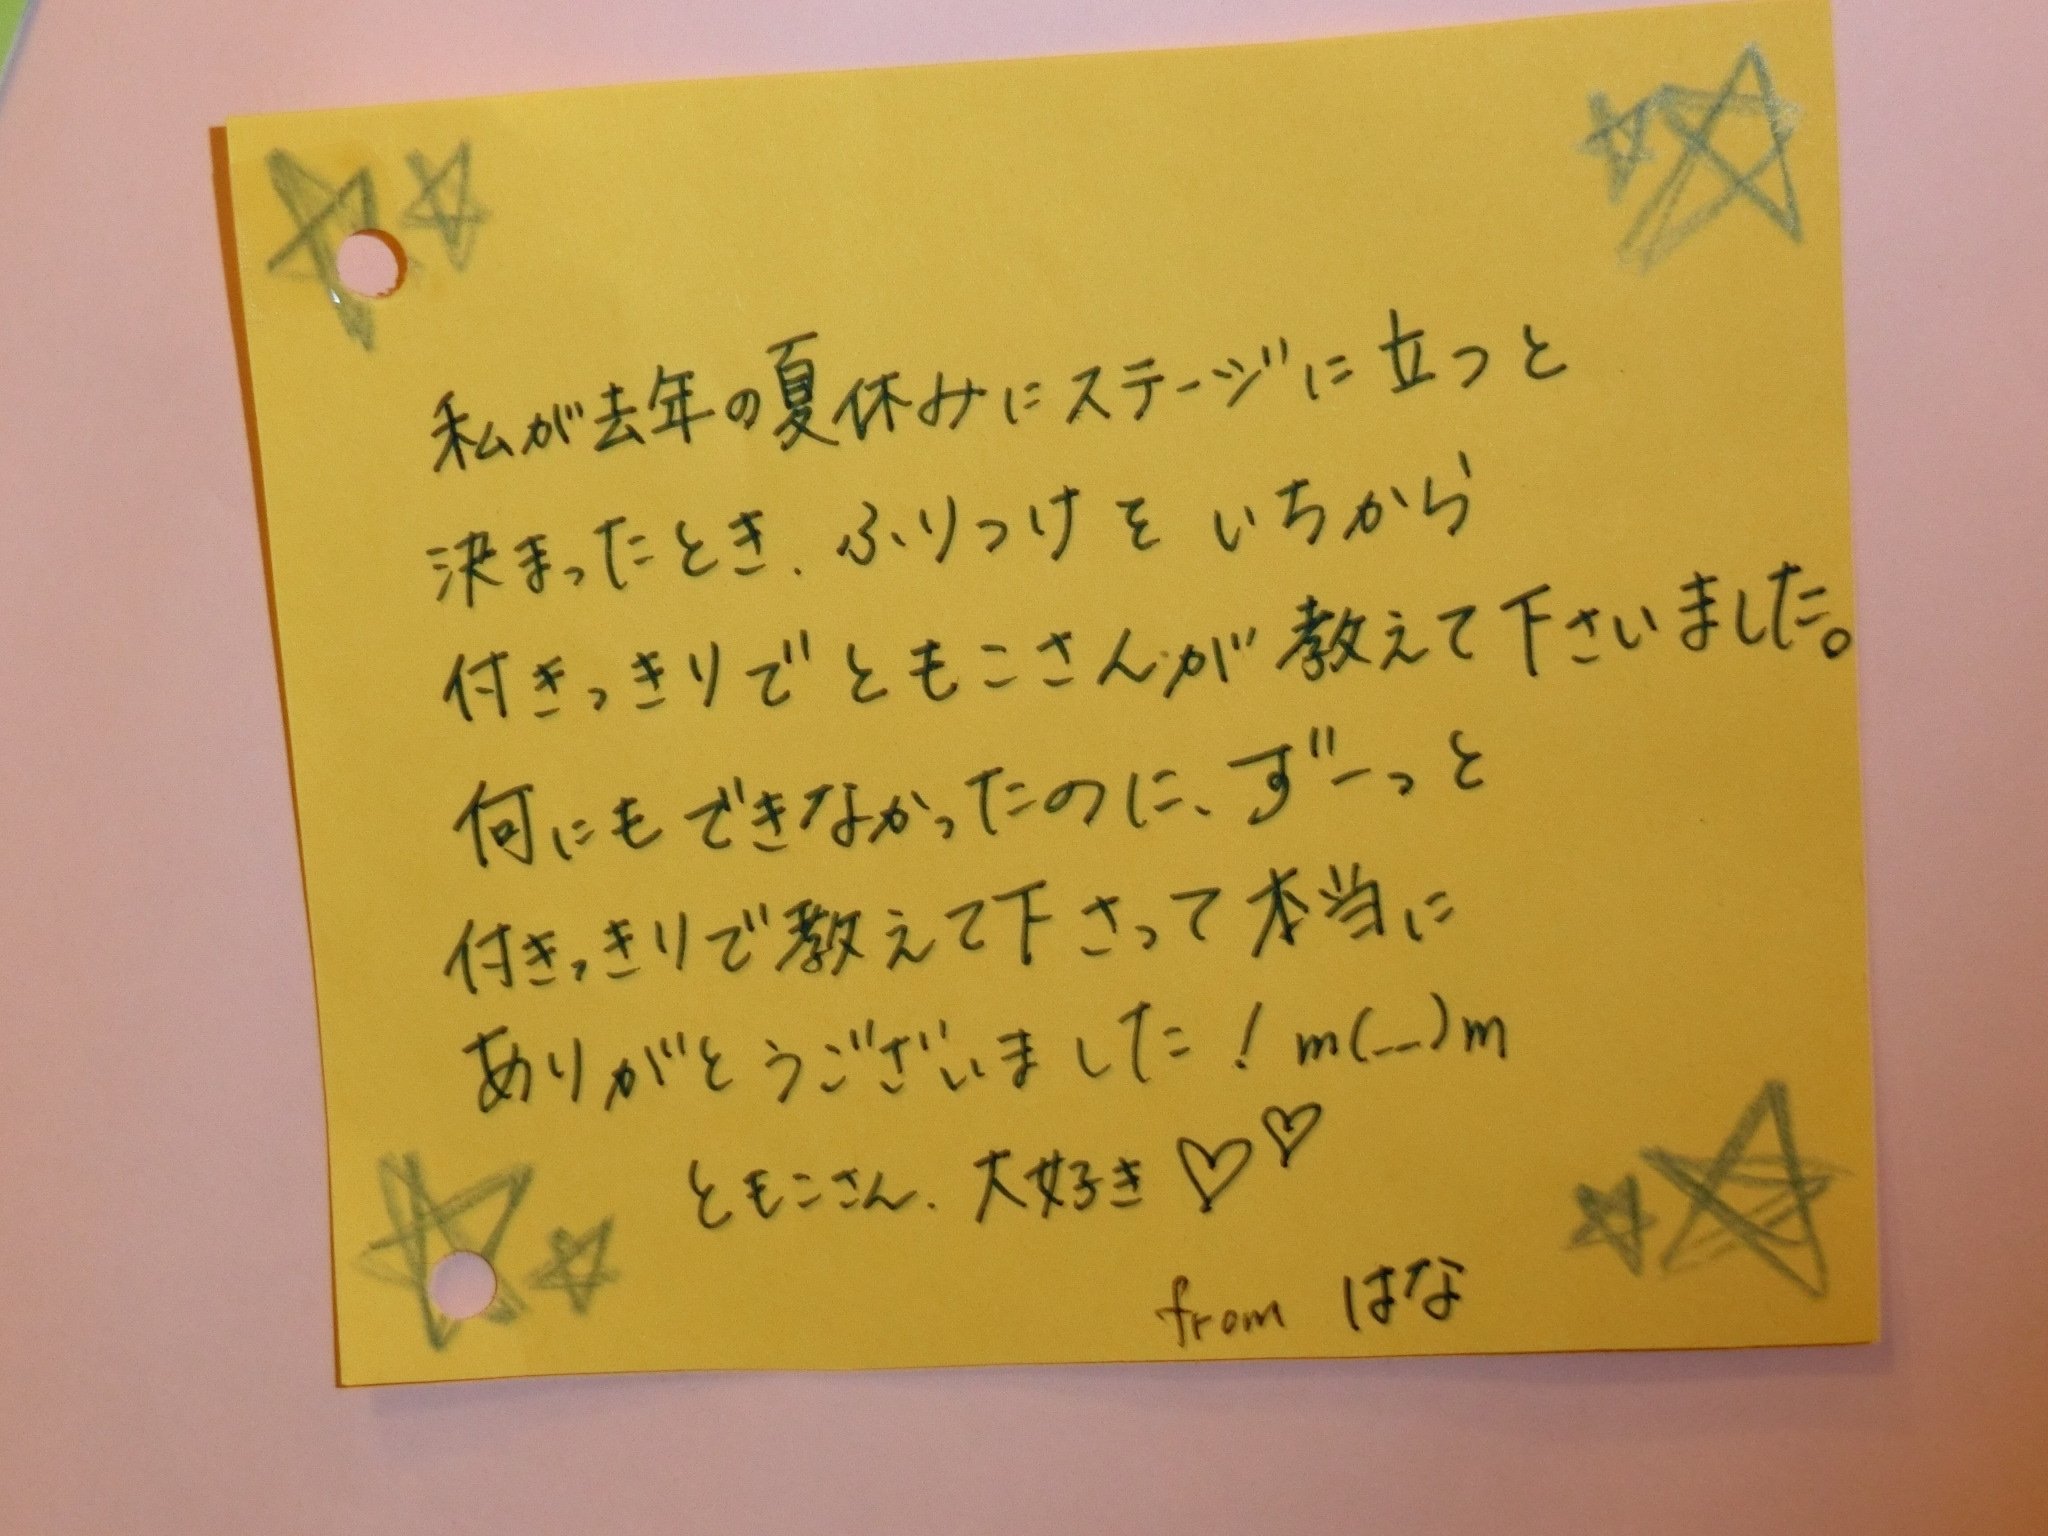 私が去年の夏休みにステージに立つと
決まったとき、ふりつけをいちから
付きっきりでともこさんが教えて下さいました。
何にもできなかったのに、ずーっと
付きっきりで教えて下さって本当に
ありがとうございました!m(__)m
ともこさん、大好き♡♡
from はな